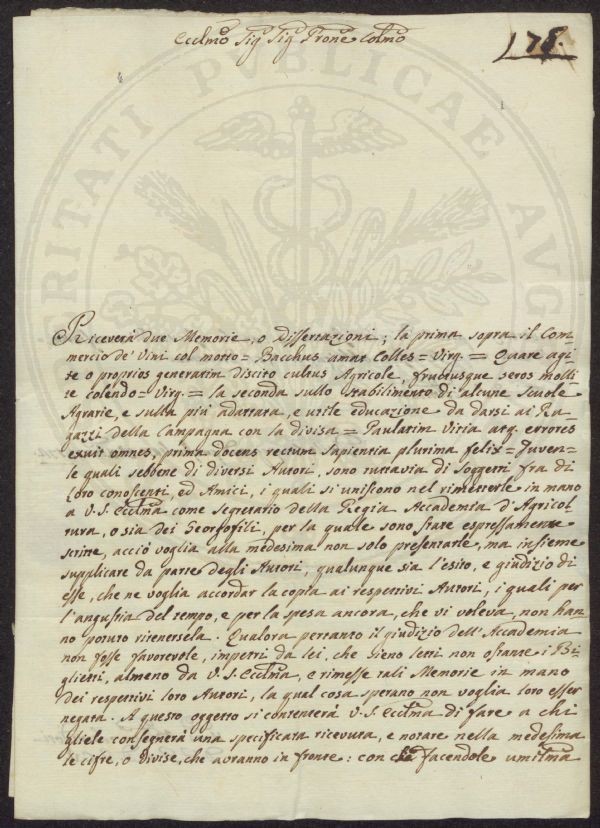 Ecclmo Sig Sig Prone Colmo
178.
PROSPERITATI PUBLICAE AUG
Riceverà due Memorie, o Dissertazioni; la prima sopra il Com
mercio de' Vini col motto = Bacchus amat Colles = Virg. = Quare agi
te o proprios generatim discito cultus Agricole, fructusque feros molli
te colendo = Virg. = la seconda sullo stabilimento di alcune scuole
Agrarie, e sulla più adattata, e utile educazione da darsi ai Ra
gazzi della Campagna con la divisa = Paulatim Vitia atq. errores
exuit omnes, prima docens rectum Sapientia plurima felix = Juven =
le quali sebbene di diversi Autori, sono tuttavia di Soggetti fra di
loro conoscenti, ed Amici, i quali si uniscono nel rimetterle in mano
a V. S. Ecclma come Segretario della Regia Accademia d'Agricol
tura, o sia dei Georgofili, per la quale sono state espressamente
scritte, acciò voglia alla medesima non solo presentarle, ma insieme
supplicare da parte degli Autori, qualunque sia l'esito, e giudizio di
esse, che ne voglia accordar la copia ai respettivi Autori, i quali per
l'angustia del tempo, e per la spesa ancora, che vi voleva, non han
no potuto ritenersela. Qualora pertanto il giudizio dell'Accademia
non fosse favorevole, impetri da lei, che sieno letti non ostante i Bi
glietti, almeno da V. S. Ecclma, e rimesse tali Memorie in mano
dei respettivi loro Autori, la qual cosa sperano non voglia loro esser
negata. A questo oggetto si contenterà V. S. Ecclma di fare a chi
gliele consegnerà una specificata ricevuta, e notare nella medesima
le cifre, o divise, che avranno in fronte: con che facendole umilma